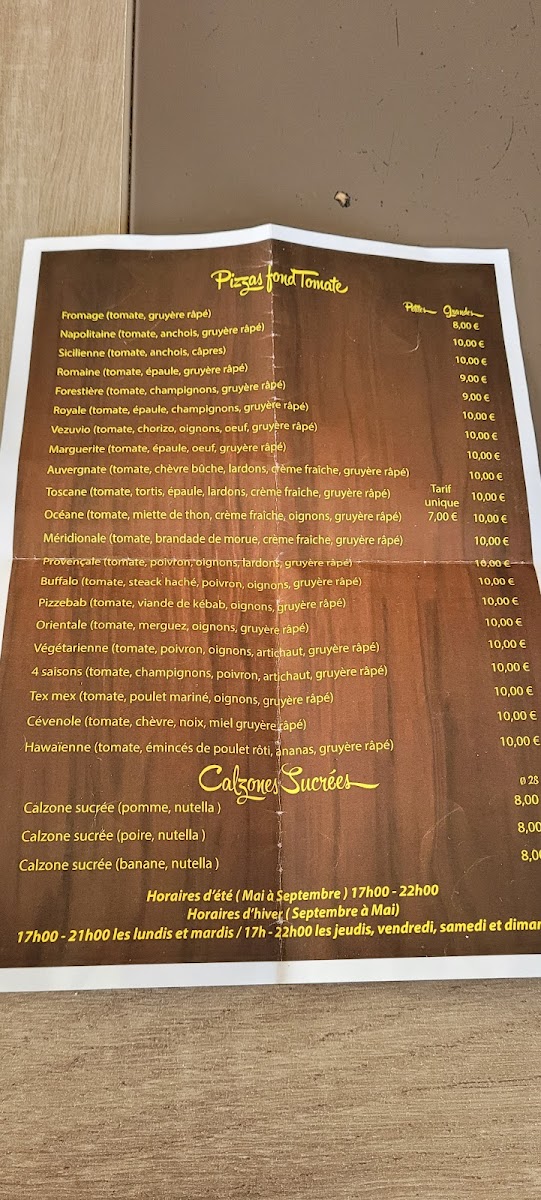 Pizzas fond Tomate
Petites Grandes
Fromage (tomate, gruyère râpé) 8,00 €
Napolitaine (tomate, anchois, gruyère râpé) 10,00 €
Sicilienne (tomate, anchois, câpres) 10,00 €
Romaine (tomate, épaule, gruyère râpé) 9,00 €
Forestière (tomate, champignons, gruyère râpé) 9,00 €
Royale (tomate, épaule, champignons, gruyère râpé) 10,00 €
Vezuvio (tomate, chorizo, oignons, oeuf, gruyère râpé) 10,00 €
Marguerite (tomate, épaule, oeuf, gruyère râpé) 10,00 €
Auvergnate (tomate, chèvre bûche, lardons, crème fraiche, gruyère râpé) 10,00 €
Toscane (tomate, tortis, épaule, lardons, crème fraiche, gruyère râpé) 10,00 €
Tarif
unique
7,00 €
Océane (tomate, miette de thon, crème fraîche, oignons, gruyère râpé) 10,00 €
Méridionale (tomate, brandade de morue, crème fraiche, gruyère râpé) 10,00 €
Provençale (tomate, poivron, oignons, lardons, gruyère râpé) 10,00 €
Buffalo (tomate, steack haché, poivron, oignons, gruyère râpé) 10,00 €
Pizzebab (tomate, viande de kébab, oignons, gruyère râpé) 10,00 €
Orientale (tomate, merguez, oignons, gruyère râpé) 10,00 €
Végétarienne (tomate, poivron, oignons, artichaut, gruyère râpé) 10,00 €
4 saisons (tomate, champignons, poivron, artichaut, gruyère râpé) 10,00 €
Tex mex (tomate, poulet mariné, oignons, gruyère râpé) 10,00 €
Cévenole (tomate, chèvre, noix, miel gruyère râpé) 10,00 €
Hawaïenne (tomate, émincés de poulet rôti, ananas, gruyère râpé) 10,00 €
Calzones Sucrées
Ø 28
Calzone sucrée (pomme, nutella ) 8,00
Calzone sucrée (poire, nutella ) 8,00
Calzone sucrée (banane, nutella ) 8,00
Horaires d'été ( Mai à Septembre ) 17h00 - 22h00
Horaires d'hiver ( Septembre à Mai)
17h00 - 21h00 les lundis et mardis / 17h - 22h00 les jeudis, vendredi, samedi et diman